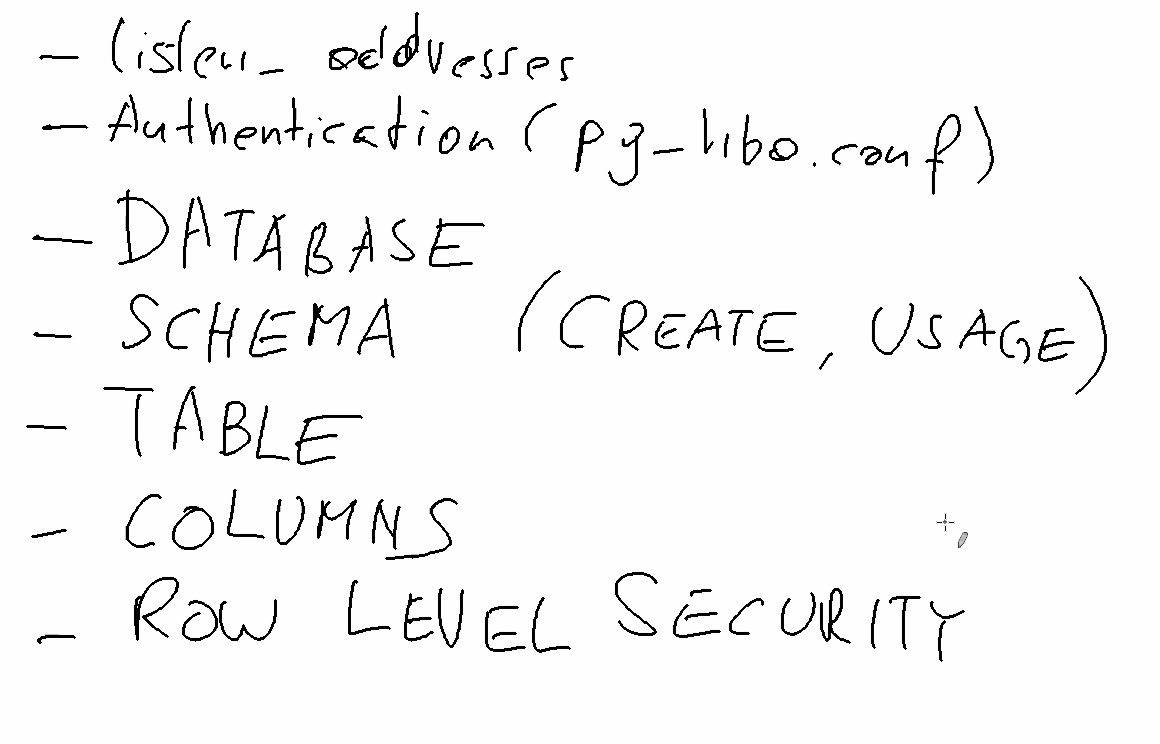 - listen_ addresses
- Authentication (pg_hba.conf)
- DATABASE
- SCHEMA (CREATE, USAGE)
- TABLE
- COLUMNS
- ROW LEVEL SECURITY